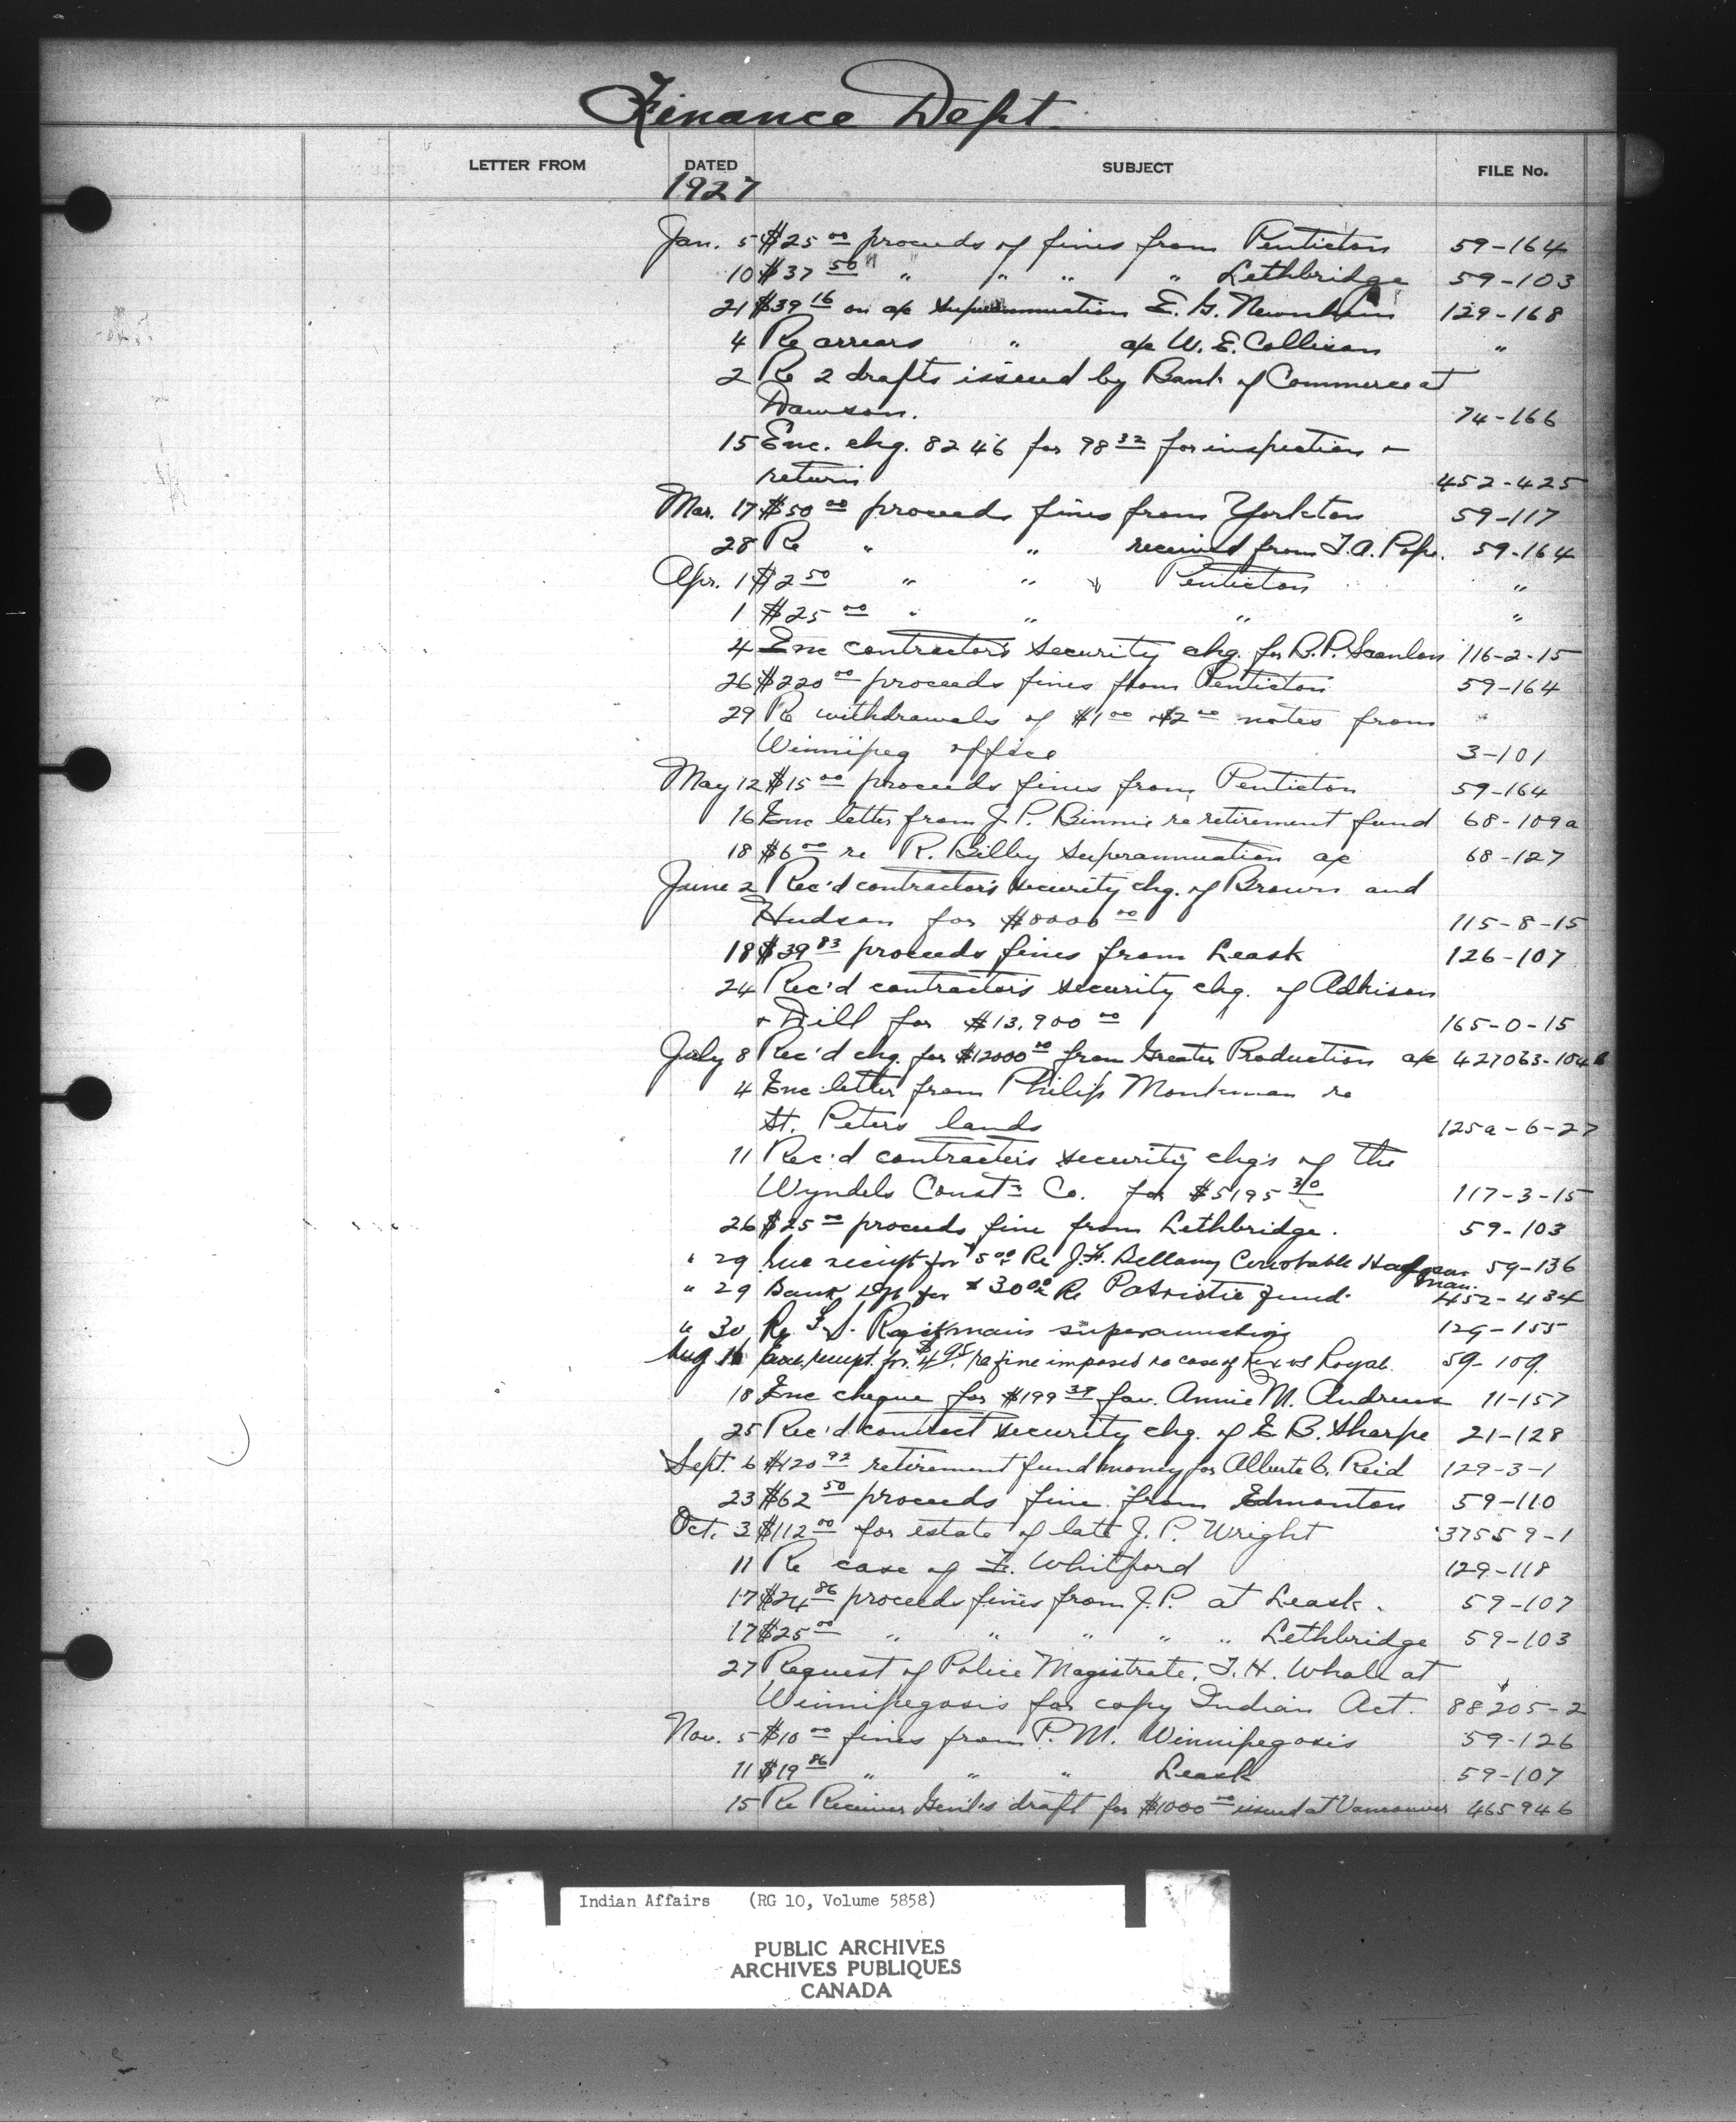 Finance Dept.
LETTER FROM DATED SUBJECT FILE No.
1927
Jan. 5 $25 00 proceeds of fines from Penticton 59-164
10 $37 50 " " " " " Lethbridge 59-103
21 $39 16 on a/c Superannuation E. G. Newnham 129-168
4 Re arrears " a/c W. E. Collison "
2 Re 2 drafts issued by Bank of Commerce at
Dawson. 74-166
15 Enc. chq. 8246 for 98 32 for inspection +
return 452-425
Mar. 17 $50 00 proceeds fines from Yorkton 59-117
28 Re " " received from T.A. Pope. 59-164
Apr. 1 $2 50 " " " Penticton "
1 $25 00 " " " "
4 Enc contractor's security chq. for B.P. Scanlon 116-2-15
26 $220 00 proceeds fines from Penticton 59-164
29 Re withdrawals of $1 00 + $2 00 notes from
Winnipeg office 3-101
May 12 $15 00 proceeds fines from Penticton 59-164
16 Enc letter from J. P. Binnie re retirement fund 68-109a
18 $6 00 re R. Bilby Superannuation a/c 68-127
June 2 Rec'd contractor's security chq. of Brown and
Hudson for $8000 00 115-8-15
18 $39 83 proceeds fines from Leask 126-107
24 Rec'd contractor's security chq. of Adkison
+ Dill for $13,900 00 165-0-15
July 8 Rec'd chq. for $12000 00 from Greater Production a/c 427063-104
4 Enc letter from Philip Monkman re
St. Peters lands 125a-6-27
11 Rec'd contractor's security chq's of the
Wyndels Const'n Co. for $5195 30 117-3-15
26 $25 00 proceeds fine from Lethbridge. 59-103
" 29 Enc receipt for $5 00 Re J.H. Bellamy Constable 59-136
man.
" 29 Bank Dft for $30 00 Re Patriotic fund. 452-434
" 30 Re superannuation 129-155
Aug 16 Enc. receipt for $4 95 re fine imposed re case of Rex vs Royal. 59-109.
18 Enc cheque for $199 39 fav. Annie M. Andrews 11-157
25 Rec'd contract security chq. of E B. Sharpe 21-128
Sept. 6 $120 92 retirement fund money for Alberta C. Reid 129-3-1
23 $62 50 proceeds fine from Edmonton 59-110
Oct. 3 $112 00 for estate of late J. P. Wright 37559-1
11 Re case of F. Whitford 129-118
17 $24 86 proceeds fines from J.P. at Leask. 59-107
17 $25 00 " " " " " Lethbridge 59-103
27 Request of Police Magistrate, T. H. Whale at
Winnipegosis for copy Indian Act. 88205-2
Nov. 5 $10 00 fines from P. M. Winnipegosis 59-126
11 $19 86 " " " Leask 59-107
15 Re Receiver Genl's draft for $1000 00 issued at Vancouver 465946
Indian Affairs (RG 10, Volume 5858)
PUBLIC ARCHIVES
ARCHIVES PUBLIQUES
CANADA